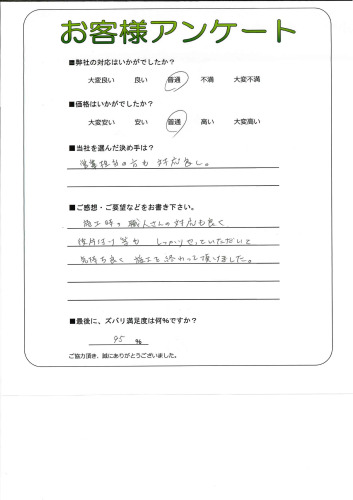 お客様アンケート
■弊社の対応はいかがでしたか?
大変良い 良い 普通 不満 大変不満
■価格はいかがでしたか?
大変安い 安い 普通 高い 大変高い
■当社を選んだ決め手は?
営業担当の方も 対応良し。
■ご感想・ご要望などをお書き下さい。
施工時の職人さんの対応も良く
後片付け等も しっかりやっていただいて
気持ち良く 施工を終わって頂けました。
■最後に、ズバリ満足度は何%ですか?
95 %
ご協力頂き、誠にありがとうございました。